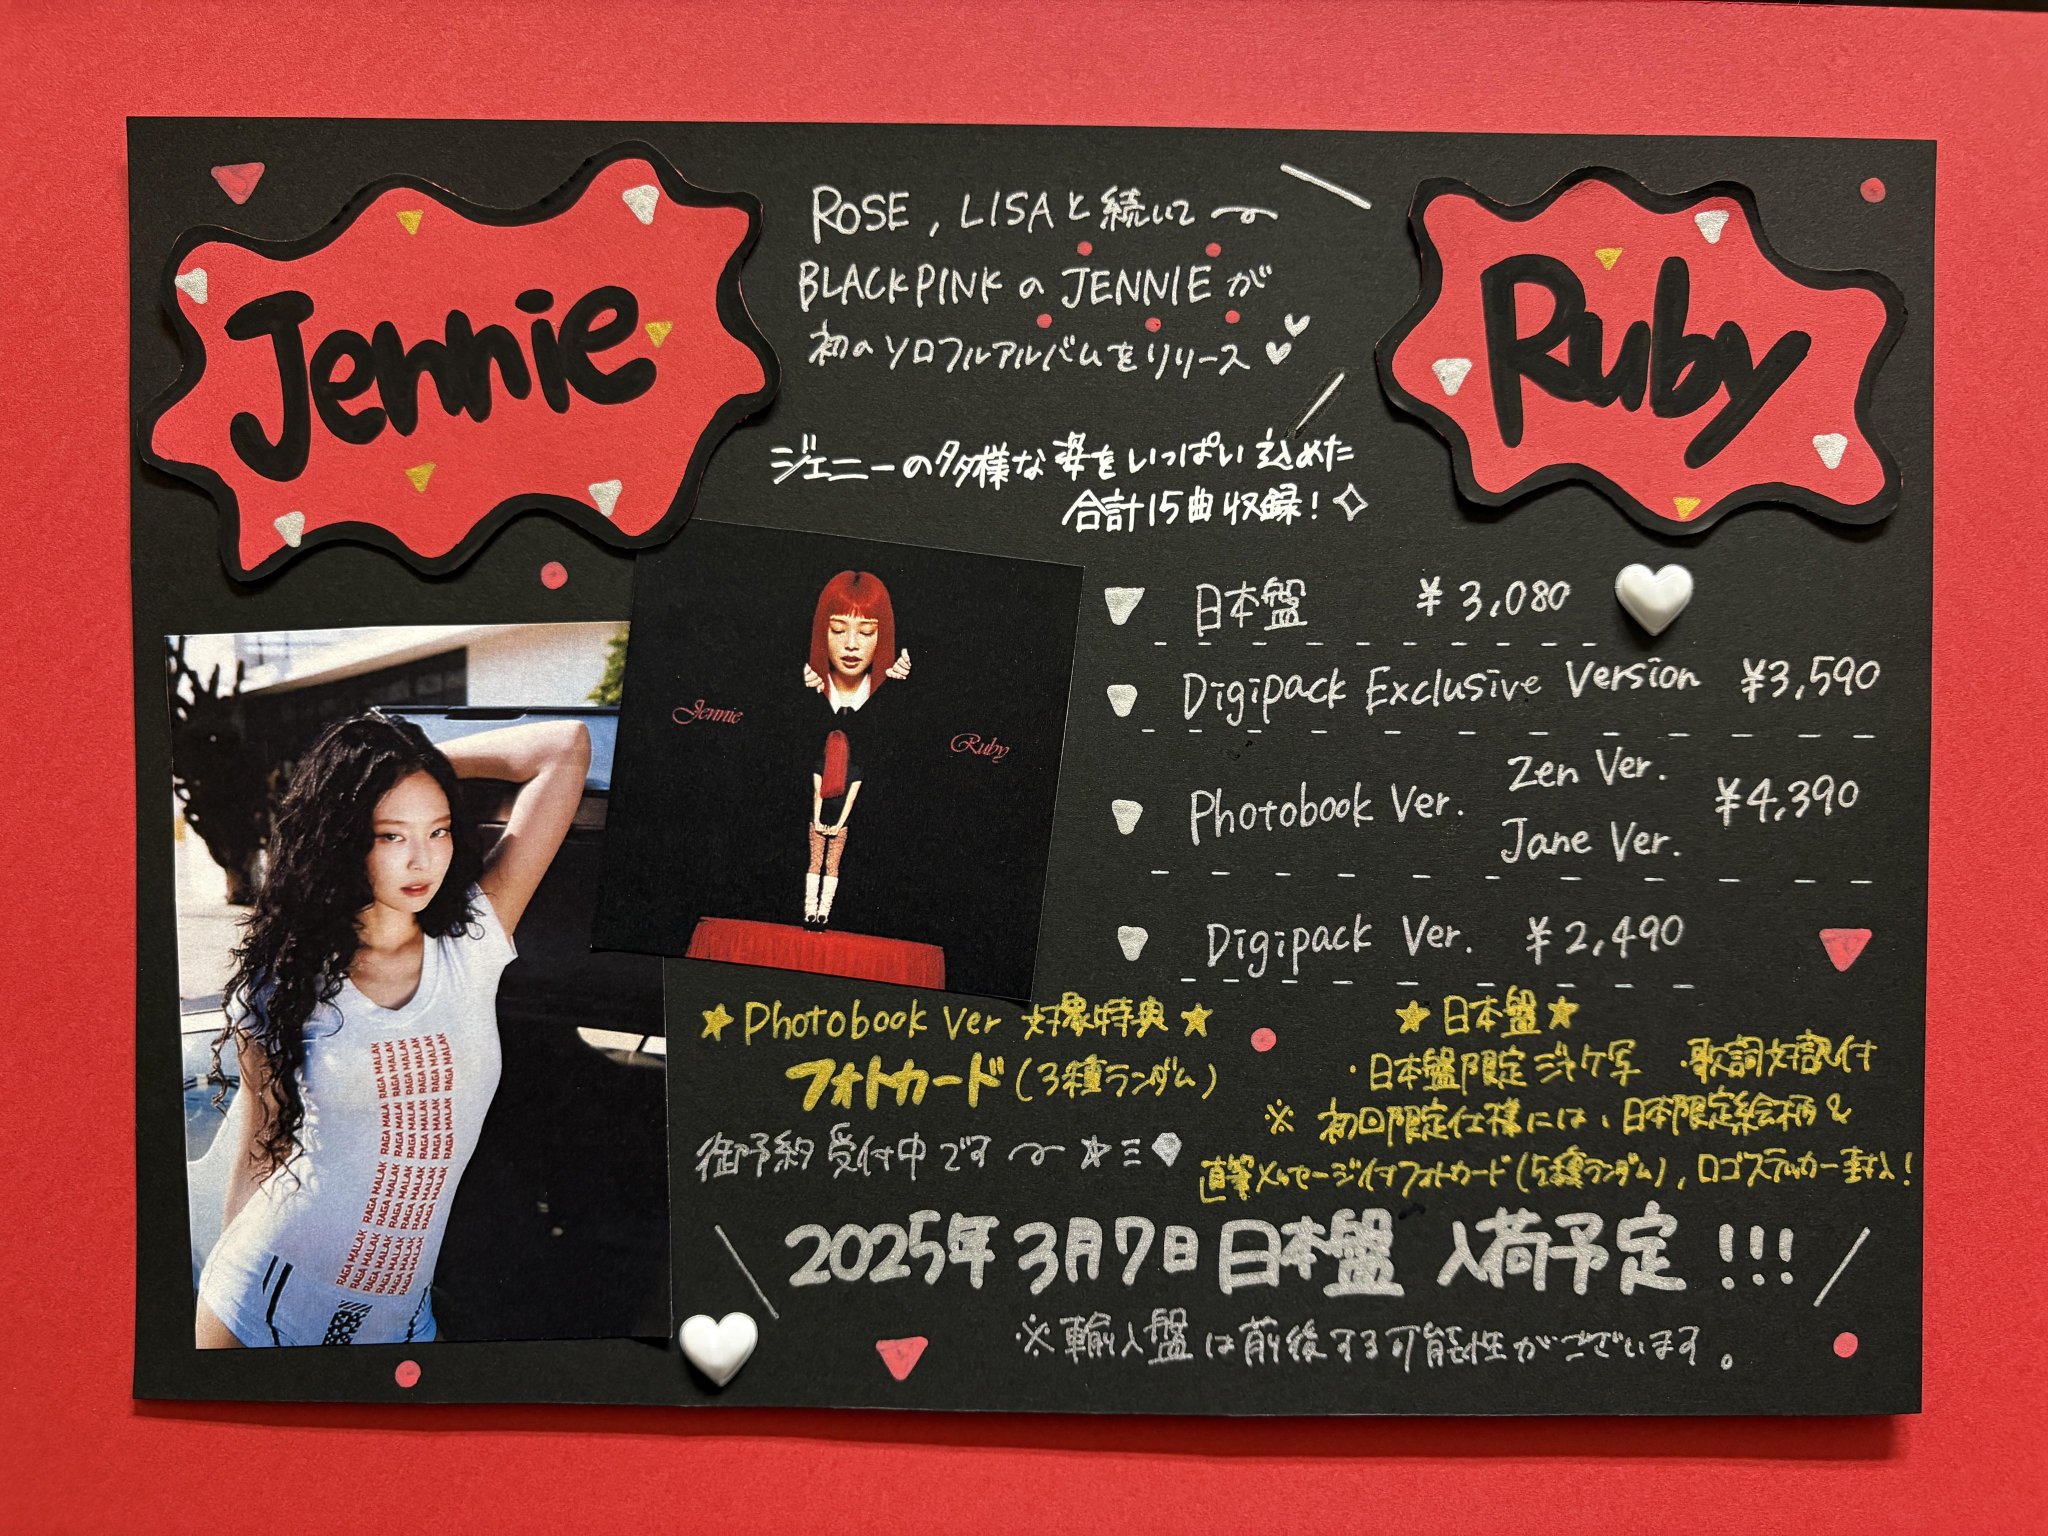 Jennie
ROSE, LISAと続いて〜
BLACKPINKのJENNIEが
初のソロフルアルバムをリリース
Ruby
ジェニーの多様な姿をいっぱい込めた
合計15曲収録!
Jennie
Ruby
日本盤 ¥3,080
Digipack Exclusive Version ¥3,590
Photobook Ver. Zen Ver. Jane Ver. ¥4,390
Digipack Ver. ¥2,490
★Photobook Ver 対象特典★
フォトカード(3種ランダム)
御予約受付中です〜
★日本盤★
・日本盤限定ジャケ写 ・歌詞対訳付
※ 初回限定仕様には、日本限定絵柄&
直筆メッセージ付フォトカード(5種ランダム), ロゴステッカー封入!
2025年3月7日 日本盤 入荷予定!!!
※輸入盤は前後する可能性がございます。
RAGA MALAK RAGA MALAK RAGA MALAK